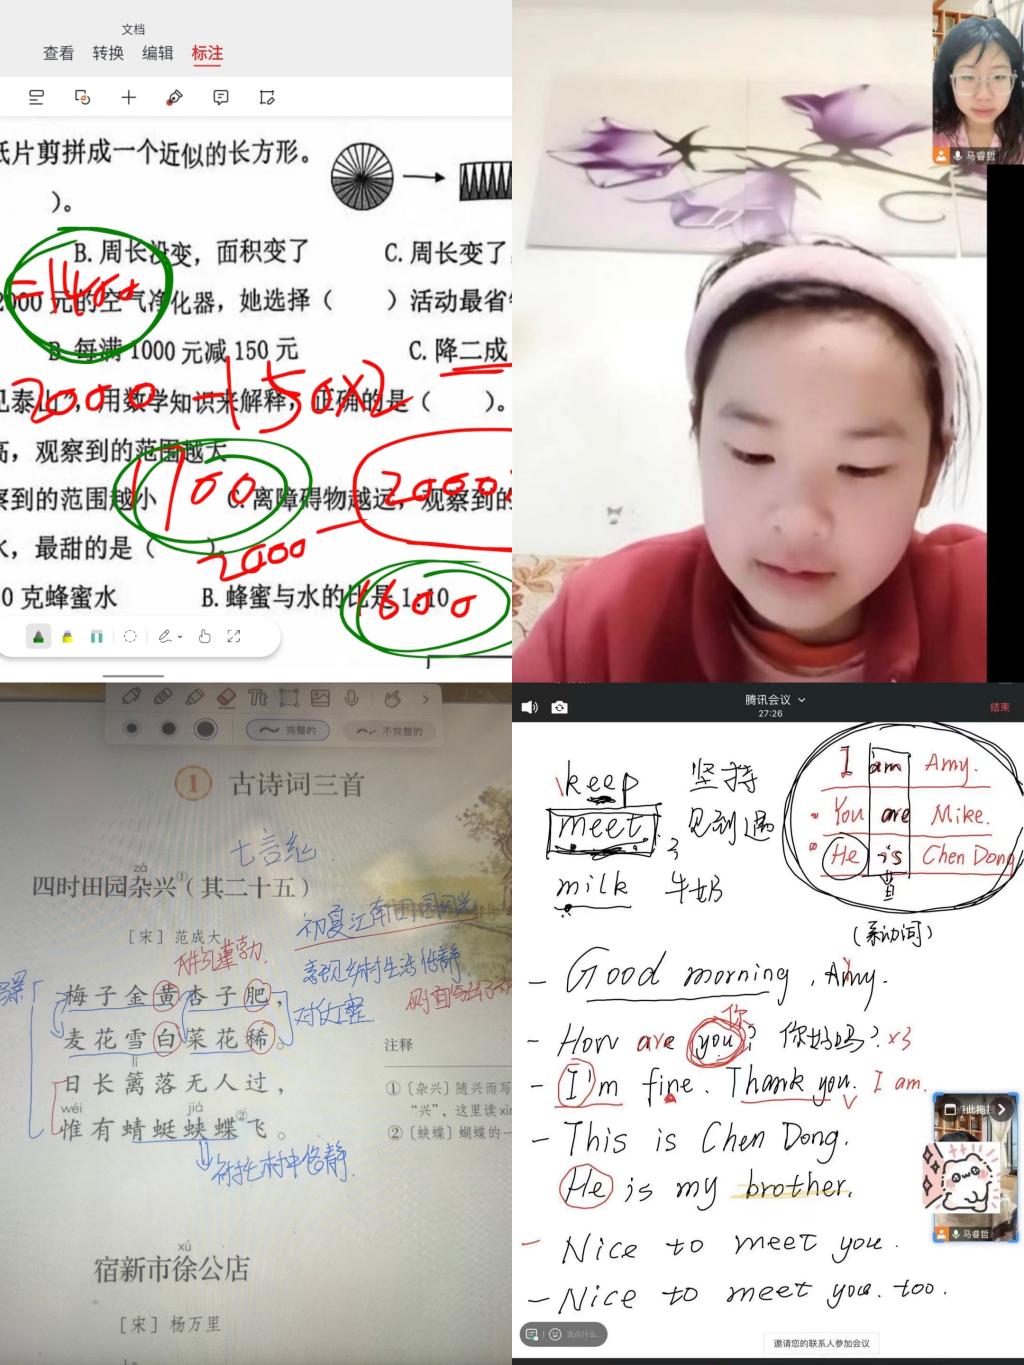 文档
查看 转换 编辑 标注
纸片剪拼成一个近似的长方形。
)。
B.周长没变，面积变了 C.周长变了
=1400
2000元的空气净化器，她选择（ ）活动最省
B.每满1000元减150元 C.降二成
2000-150×2
见泰山”，用数学知识来解释，正确的是（ ）。
高，观察到的范围越大
1700
2000
察到的范围越小 C.离障碍物越远，观察到的
水，最甜的是（ ）。
2000-
0克蜂蜜水 B.蜂蜜与水的比是1:10
1600
马睿哲
完整的 不完整的
1 古诗词三首
七言绝
zá
四时田园杂兴①（其二十五）
［宋］范成大
初夏江南田园风光
表现乡村生活恬静
梅子金黄杏子肥，
对仗工整
麦花雪白菜花稀。
注释
lí
日长篱落无人过，
①〔杂兴〕随兴而写
“兴”，这里读xìn
wéi jiá
惟有蜻蜓蛱蝶②飞。
②〔蛱蝶〕蝴蝶的一
衬托村中恬静.
xú
宿新市徐公店
［宋］杨万里
腾讯会议
27:26
结束
keep 坚持
meet 见到遇
milk 牛奶
I am Amy.
You are Mike.
He is Chen Dong
(系动词)
- Good morning, Amy.
你
- How are you? 你好吗? ×3
- I'm fine. Thank you. I am.
- This is Chen Dong.
He is my brother.
- Nice to meet you.
- Nice to meet you. too.
点此拖拽
马睿哲
说点什么...
邀请您的联系人参加会议